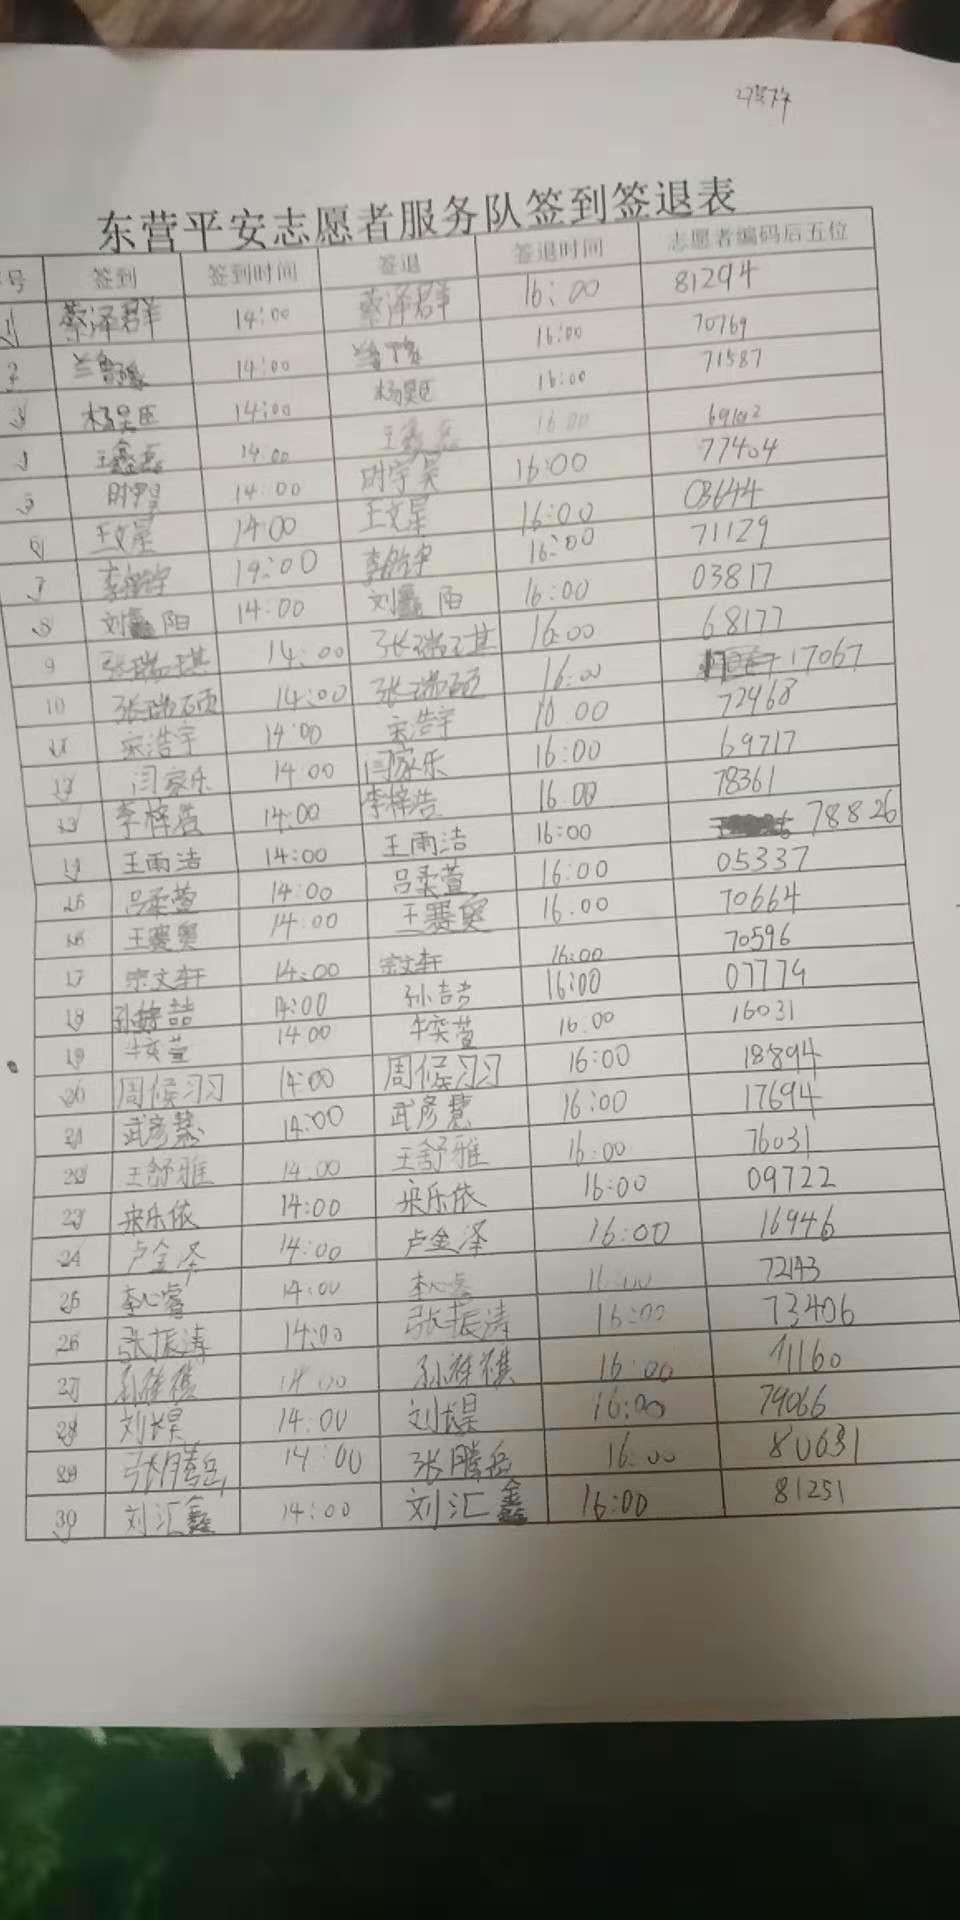 东营平安志愿者服务队签到签退表
号 签到 签到时间 签退 签退时间 志愿者编码后五位
1 蔡泽群 14:00 蔡泽群 16:00 81294
2 14:00 16:00 70769
3 杨昊臣 14:00 杨昊臣 16:00 71587
4 王鑫磊 14:00 王鑫磊 16:00
5 14:00 时宇昊 16:00 77404
6 王文星 14:00 王文星 16:00 03644
7 14:00 16:00 71129
8 刘鑫阳 14:00 刘鑫雨 16:00 03817
9 张瑞琪 14:00 张瑞琪 16:00 68177
10 张瑞硕 14:00 张瑞硕 16:00 17067
11 宋浩宇 14:00 宋浩宇 16:00 72468
12 闫家乐 14:00 闫家乐 16:00 69717
13 李梓浩 14:00 李梓浩 16:00 78361
14 王雨洁 14:00 王雨洁 16:00 78826
15 吕柔萱 14:00 吕柔萱 16:00 05337
16 王赛奥 14:00 王赛奥 16:00 70664
17 宗文轩 14:00 宗文轩 16:00 70596
18 14:00 孙喆 16:00 07779
19 牛奕萱 14:00 牛奕萱 16:00 16031
20 周候习习 14:00 周候习习 16:00 18894
21 武彦慧 14:00 武彦慧 16:00 17694
22 王舒雅 14:00 王舒雅 16:00 76031
23 宋乐依 14:00 宋乐依 16:00 09722
24 卢金泽 14:00 卢金泽 16:00 16946
25 李心睿 14:00 李心睿 16:00 72143
26 张振涛 14:00 张振涛 16:00 73406
27 14:00 16:00 71160
28 刘长昊 14:00 刘长昊 16:00 79066
29 张腾岳 14:00 张腾岳 16:00 80631
30 刘汇鑫 14:00 刘汇鑫 16:00 81251